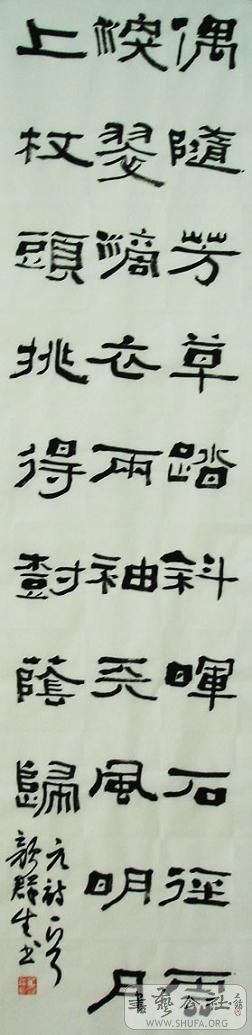 偶隨芳草踏斜暉石徑雲
深翠滴衣兩袖天風明月
上杖頭挑得樹蔭歸
元詩一首
群生書
書藝公社
WWW.SHUFA.ORG